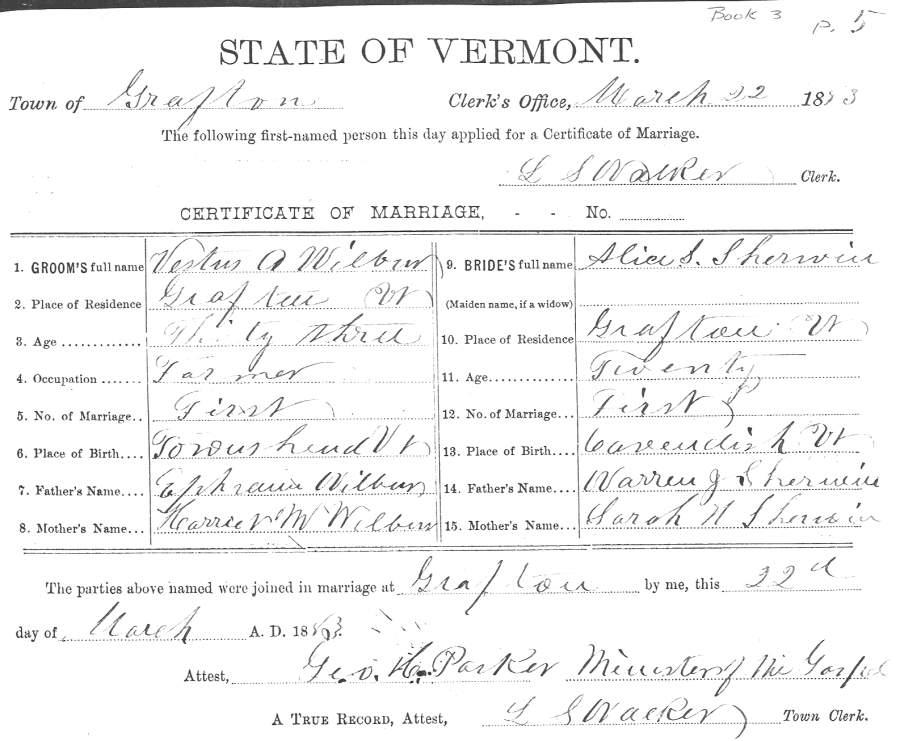 Book 3
P. 5
STATE OF VERMONT.
Town of Grafton Clerk's Office, March 22 1883
The following first-named person this day applied for a Certificate of Marriage.
L S Walker Clerk.
CERTIFICATE OF MARRIAGE, - - No.
1. GROOM'S full name Vestus A Wilbur
2. Place of Residence Grafton Vt
3. Age Thirty three
4. Occupation Farmer
5. No. of Marriage.. First
6. Place of Birth.... Townshend Vt
7. Father's Name.... Ephraim Wilbur
8. Mother's Name... Harriet M Wilbur
9. BRIDE'S full name Alice S. Sherwin
(Maiden name, if a widow)
10. Place of Residence Grafton Vt
11. Age Twenty
12. No. of Marriage... First
13. Place of Birth.... Cavendish Vt
14. Father's Name.... Warren J Sherwin
15. Mother's Name... Sarah H Sherwin
The parties above named were joined in marriage at Grafton by me, this 22d
day of March A. D. 1883.
Attest, Geo. H. Parker Minister of the Gospel
A TRUE RECORD, Attest, L S Walker Town Clerk.